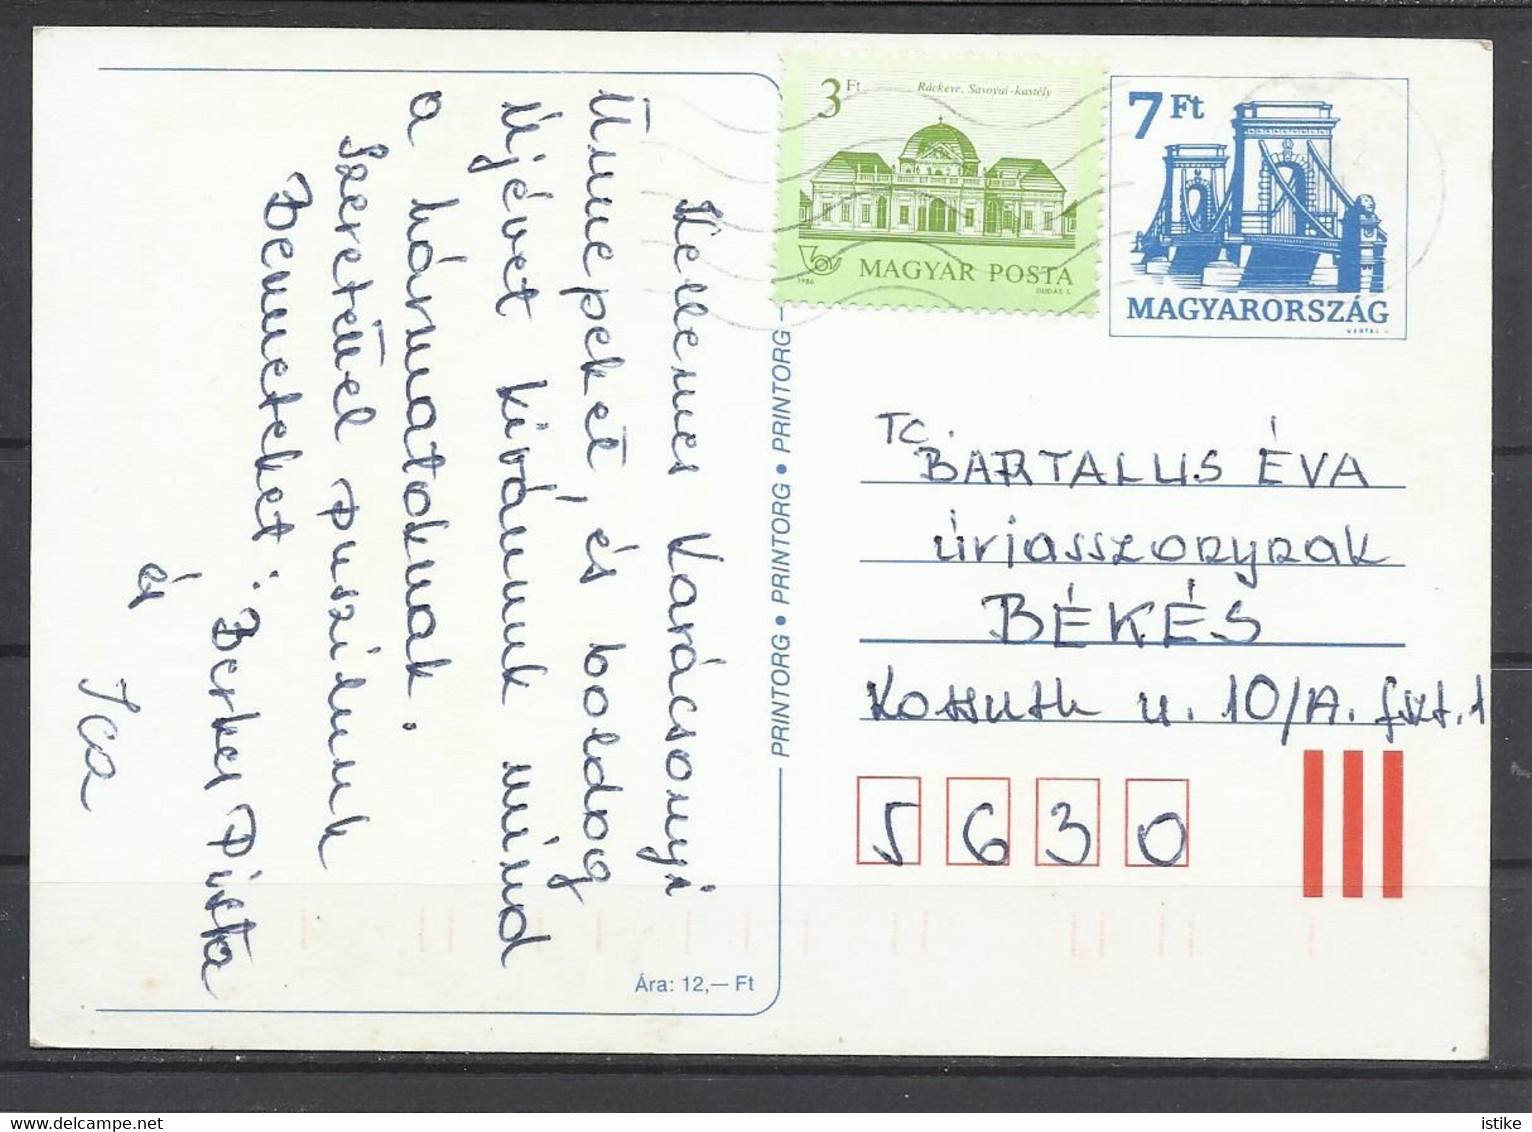 Kellemes Karácsonyi
Ünnepeket, és boldog
Újévet kívánunk mind
a hármatoknak.
Szeretettel puszilunk
Benneteket: Berkes Pista
és
Ica
Ára: 12,— Ft
PRINTORG • PRINTORG • PRINTORG
3 Ft
Ráckeve, Savoyai-kastély
MAGYAR POSTA
1986
DUDÁS L.
7 Ft
MAGYARORSZÁG
VERTEL J.
TC.
BARTALUS ÉVA
úriasszonynak
BÉKÉS
Kossuth u. 10/A. fszt. 1
5630
www.delcampe.net
istike